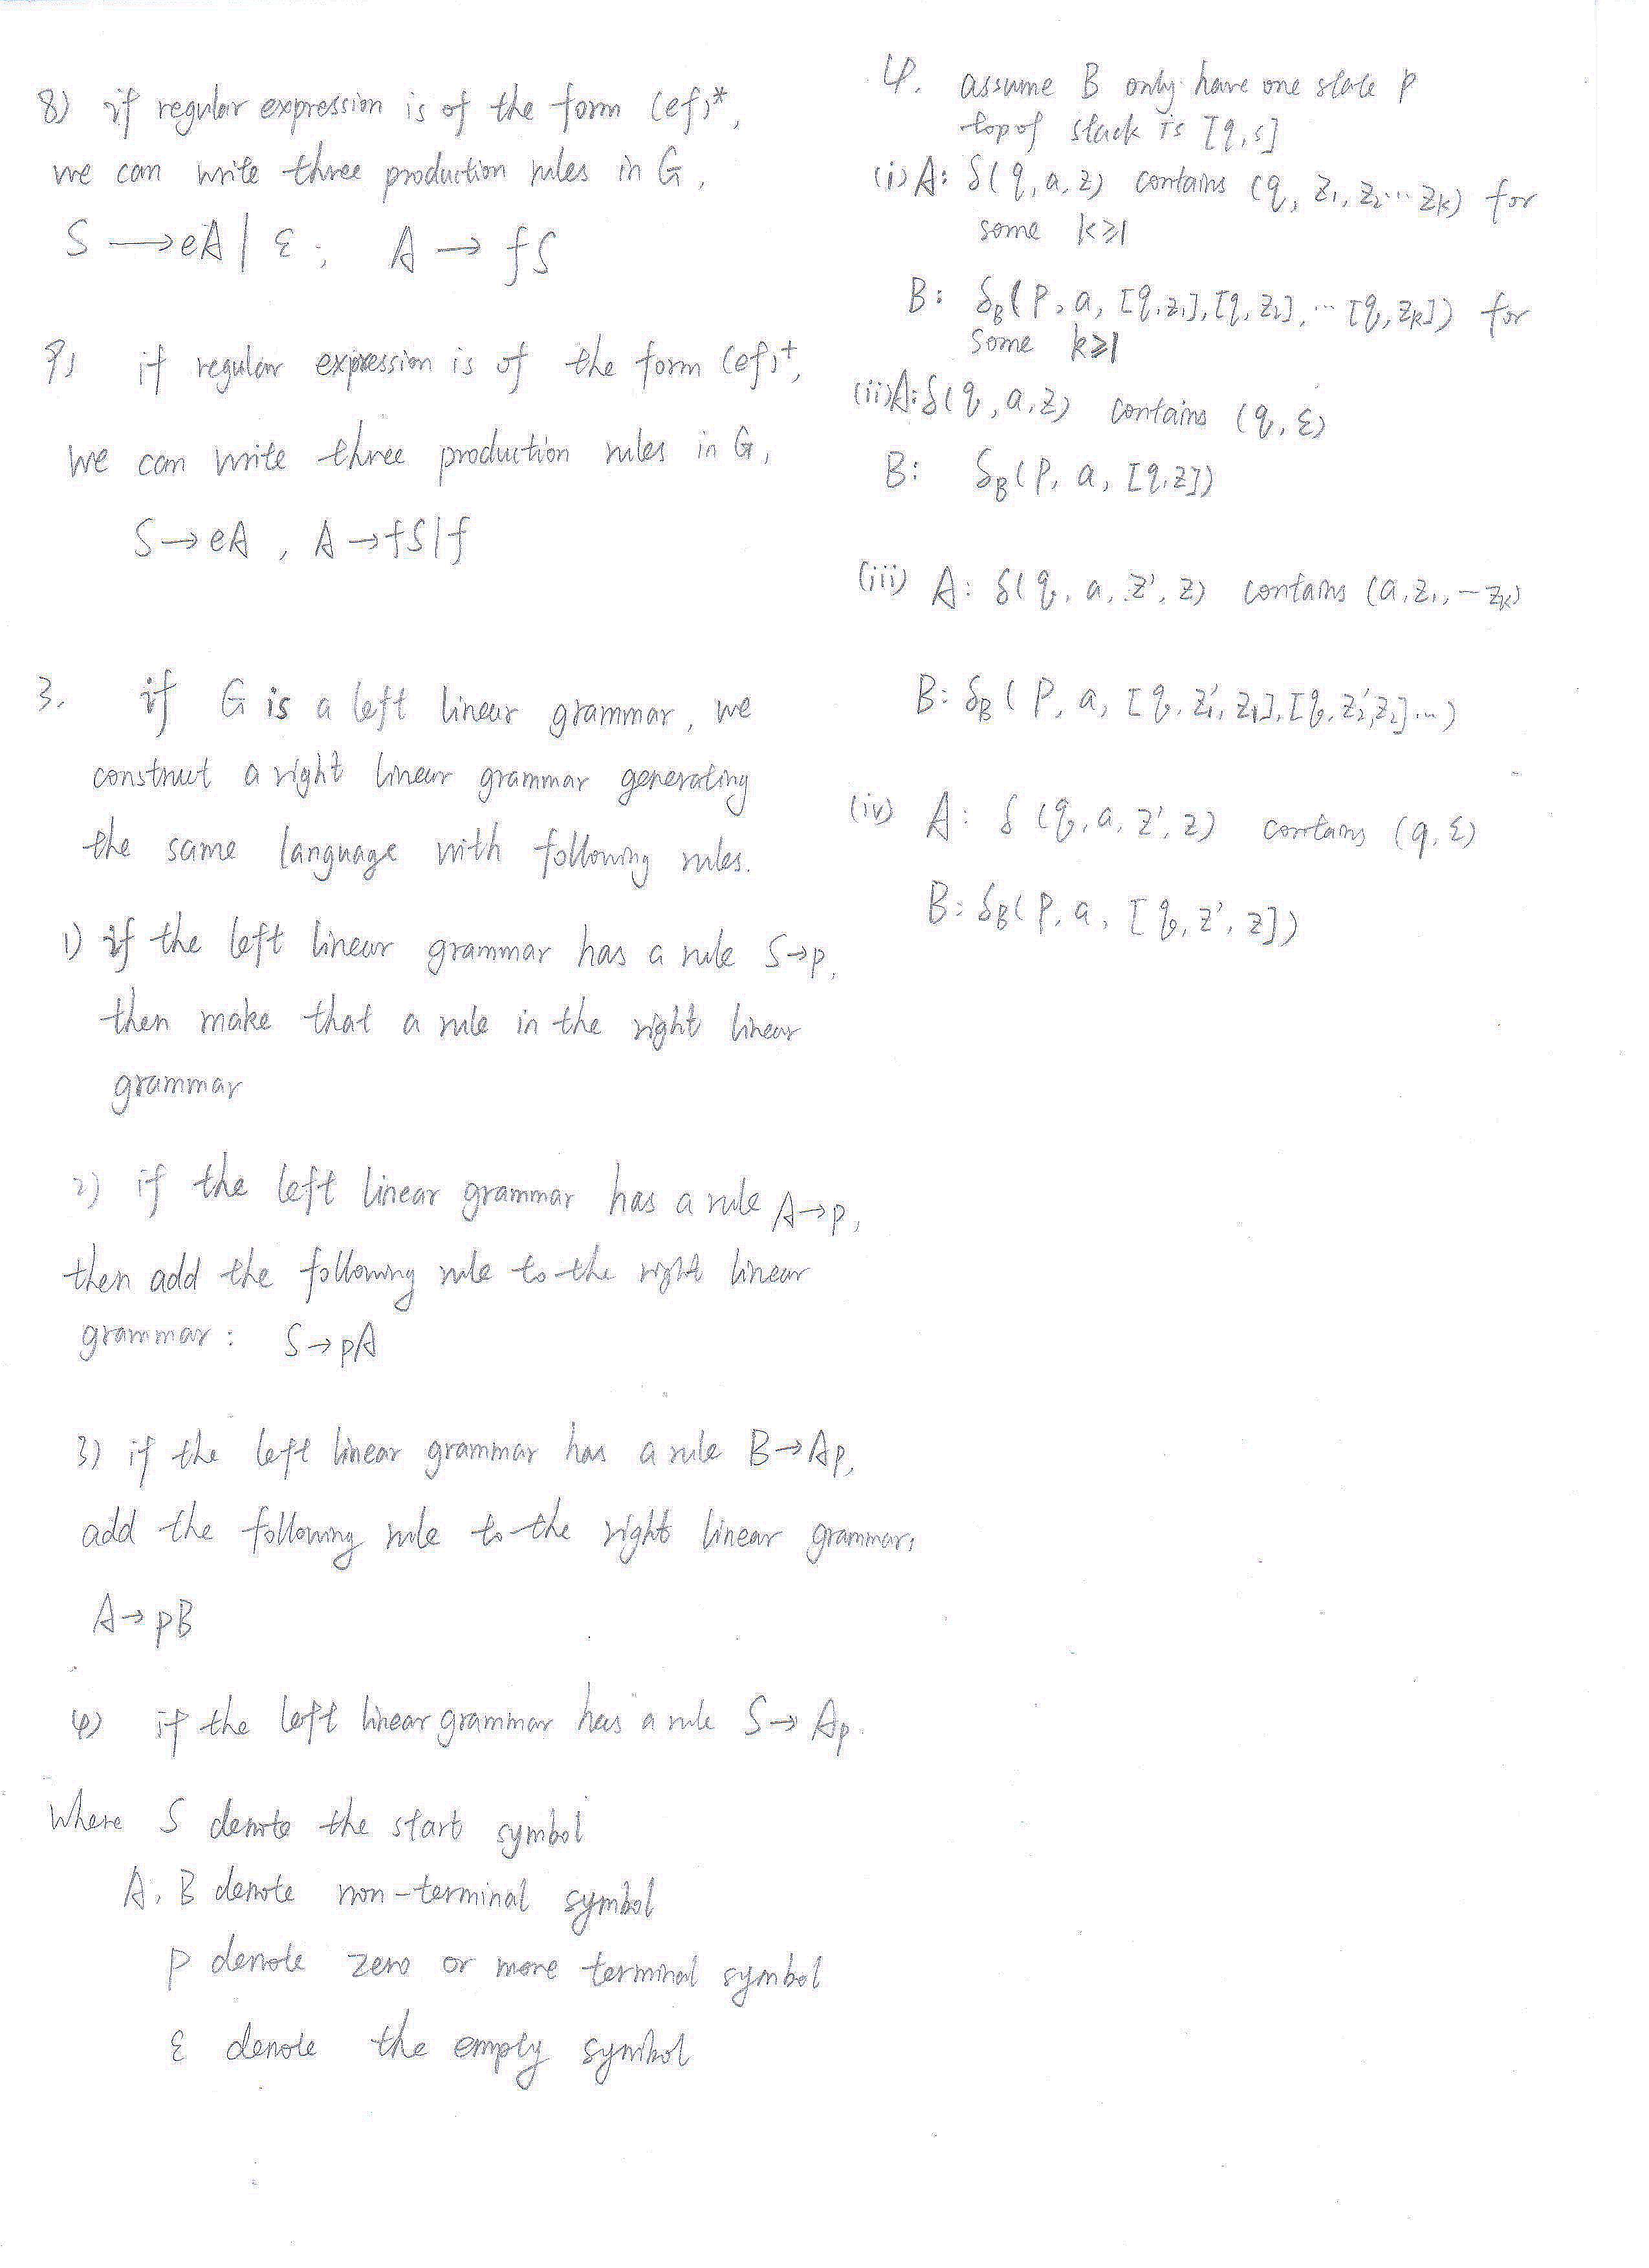 8) if regular expression is of the form (ef)*,
we can write three production rules in G,
S → eA | ε; A → fS
9) if regular expression is of the form (ef)+,
we can write three production rules in G,
S → eA , A → fS|f
3. if G is a left linear grammar, we
construct a right linear grammar generating
the same language with following rules.
1) if the left linear grammar has a rule S→p,
then make that a rule in the right linear
grammar
2) if the left linear grammar has a rule A→p,
then add the following rule to the right linear
grammar: S→pA
3) if the left linear grammar has a rule B→Ap,
add the following rule to the right linear grammar,
A→pB
4) if the left linear grammar has a rule S→Ap.
Where S denote the start symbol
A, B denote non-terminal symbol
p denote zero or more terminal symbol
ε denote the empty symbol
4. assume B only have one state p
top of stack is [q,s]
(i) A: δ(q, a, z) contains (q, z₁, z₂...zₖ) for
some k≥1
B: δ_B(p, a, [q,z₁],[q,z₂],...[q,zₖ]) for
some k≥1
(ii) A: δ(q, a, z) contains (q, ε)
B: δ_B(p, a, [q,z])
(iii) A: δ(q, a, z', z) contains (a, z₁, –zₖ)
B: δ_B(p, a, [q, z₁', z₁],[q, z₂', z₂]...)
(iv) A: δ(q, a, z', z) contains (q, ε)
B: δ_B(p, a, [q, z', z])